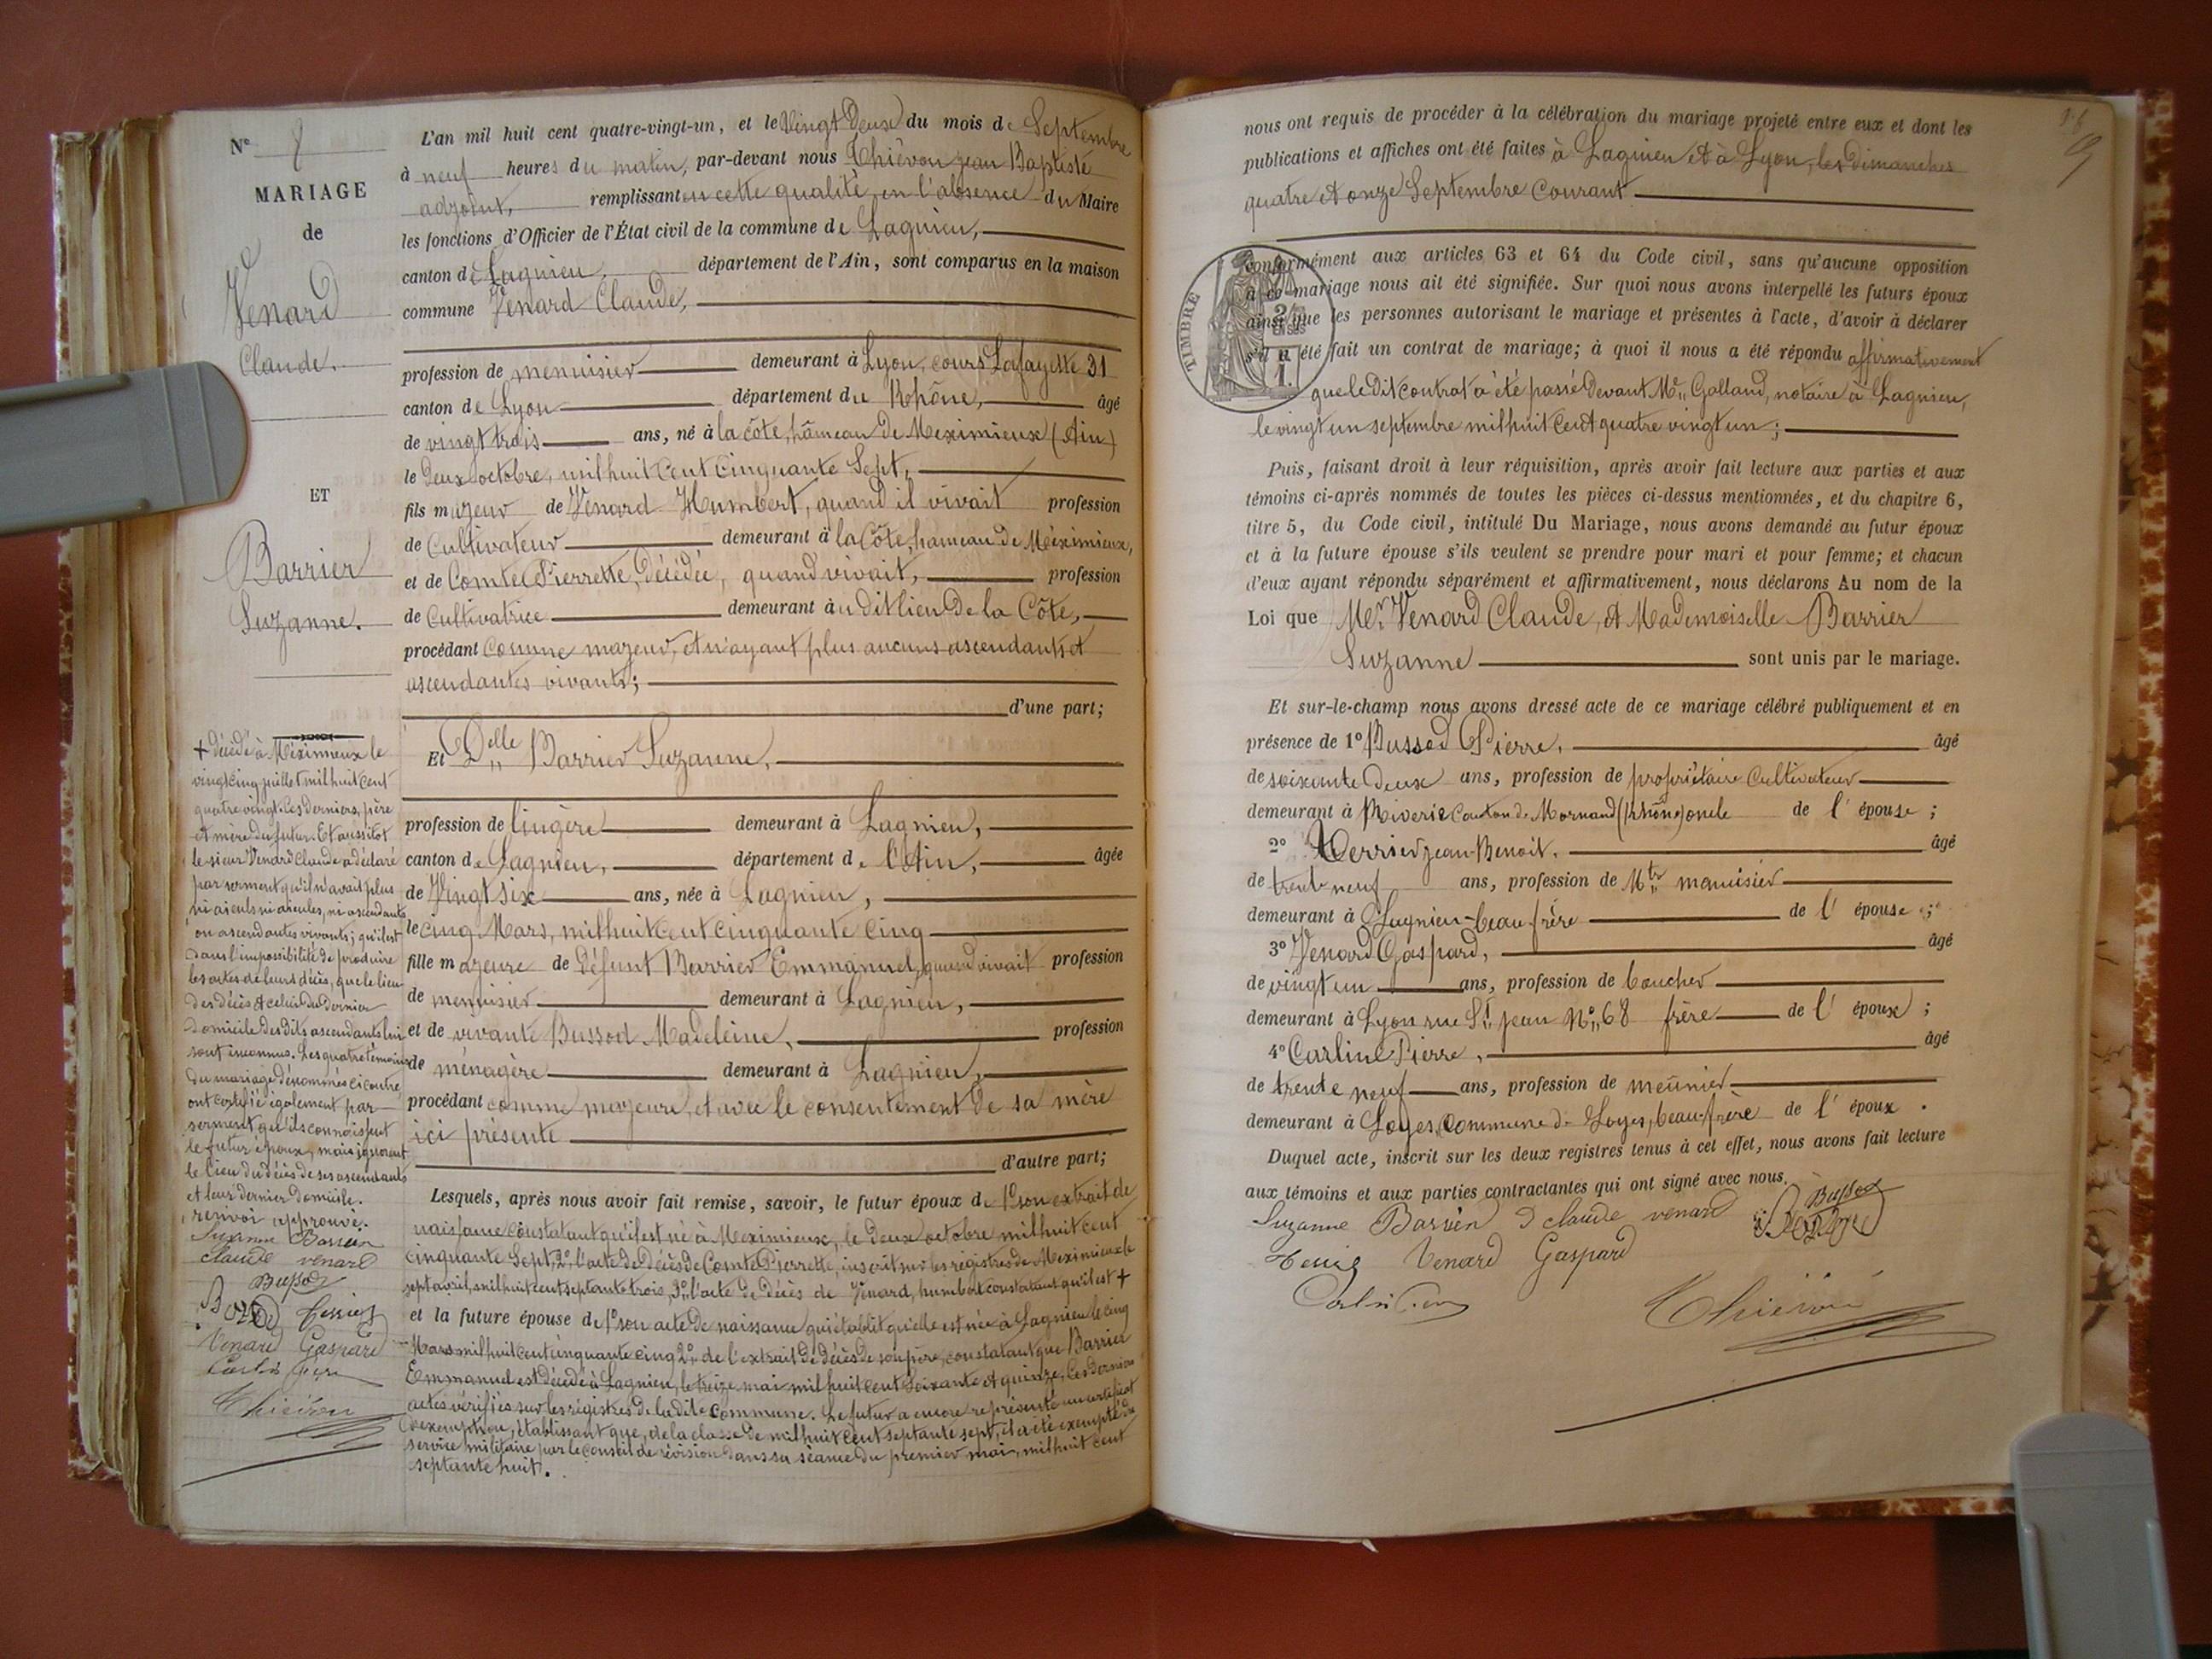 N° 8
MARIAGE
de
Venard
Claude.
ET
Barrier
Suzanne.
L'an mil huit cent quatre-vingt-un, et le Vingt Deux du mois de Septembre
à neuf heures du matin, par-devant nous Thiévon Jean Baptiste
adjoint, remplissant en cette qualité, en l'absence du Maire
les fonctions d'Officier de l'État civil de la commune de Lagnieu,
canton de Lagnieu, département de l'Ain, sont comparus en la maison
commune Venard Claude,
profession de menuisier demeurant à Lyon, cours Lafayette 31
canton de Lyon département du Rhône, âgé
de vingt trois ans, né à la côte, hâmeau de Meximieux (Ain)
le Deux octobre, mil huit Cent Cinquante Sept,
fils majeur de Venard Humbert, quand il vivait profession
de Cultivateur demeurant à la Côte, hameau de Méximieux,
et de Comte Pierrette, Décédée, quand vivait, profession
de Cultivatrice demeurant au dit lieu De la Côte,
procédant Comme majeur, et n'ayant plus aucuns ascendants et
ascendantes vivants;
d'une part;
Et Delle Barrier Suzanne,
profession de lingère demeurant à Lagnieu,
canton de Lagnieu, département de l'Ain, âgée
de Vingt six ans, née à Lagnieu,
le cinq Mars, mil huit Cent Cinquante Cinq
fille majeure de Défunt Barrier Emmanuel, quand vivait profession
de menuisier demeurant à Lagnieu,
et de vivante Bussod Madeleine, profession
de ménagère demeurant à Lagnieu,
procédant comme majeure, et avec le consentement De sa mère
ici présente
d'autre part;
Lesquels, après nous avoir fait remise, savoir, le futur époux de 1° son extrait de
naissance Constatant qu'il est né à Meximieux, le Deux octobre mil huit cent
cinquante Sept, 2° l'acte de décès de Comte Pierrette, inscrit sur les régistres de Meximieux le
sept avril, mil huit cent septante trois, 3° l'acte de Décès de Venard, humbert constatant qu'il est +
et la future épouse de 1° son acte de naissance qui établit qu'elle est née à Lagnieu le cinq
Mars mil huit cent cinquante cinq 2° de l'extrait de décès de son père, constatant que Barrier
Emmanuel est décédé à Lagnieu, le treize mai mil huit cent Soixante et quinze, Ces derniers
actes vérifiés sur les régistres de la dite Commune. Le futur a encore représenté un certificat
d'exemption, établissant que, de la classe de mil huit Cent septante sept, il a été exempté du
service militaire par le Conseil de révision dans sa séance du premier mai, mil huit cent
septante huit.
+ décédé à Méximieux le
vingt cinq juillet mil huit cent
quatre vingt. Ces derniers, père
et mère du futur. Et aussitôt
le sieur Venard Claude a déclaré
par serment qu'il n'avait plus
ni aïeuls ni aïeules, ni ascendants
ou ascendantes vivants; qu'il est
dans l'impossibilité de produire
les actes de leurs décès, que le lieu
des décès et celui du dernier
domicile des dits ascendants lui
sont inconnus. Les quatre témoins
du mariage dénommés ci contre,
ont certifié également par
serment qu'ils connaissent
le futur époux, mais ignorent
le lieu du décès de ses ascendants
et leur dernier domicile.
renvoi approuvé.
Suzanne Barrier
claude venard
Bussod
Venard Gaspard
Thiévon
nous ont requis de procéder à la célébration du mariage projeté entre eux et dont les
publications et affiches ont été faites à Lagnieu et à Lyon, les dimanches
quatre et onze Septembre Courant
TIMBRE
conformément aux articles 63 et 64 du Code civil, sans qu'aucune opposition
à ce mariage nous ait été signifiée. Sur quoi nous avons interpellé les futurs époux
ainsi que les personnes autorisant le mariage et présentes à l'acte, d'avoir à déclarer
s'il a été fait un contrat de mariage; à quoi il nous a été répondu affirmativement
que le Dit Contrat a été passé Devant Me Galland, notaire à Lagnieu,
le vingt un septembre mil huit Cent quatre vingt un;
Puis, faisant droit à leur réquisition, après avoir fait lecture aux parties et aux
témoins ci-après nommés de toutes les pièces ci-dessus mentionnées, et du chapitre 6,
titre 5, du Code civil, intitulé Du Mariage, nous avons demandé au futur époux
et à la future épouse s'ils veulent se prendre pour mari et pour femme; et chacun
d'eux ayant répondu séparément et affirmativement, nous déclarons Au nom de la
Loi que Mr Venard Claude, et Mademoiselle Barrier
Suzanne sont unis par le mariage.
Et sur-le-champ nous avons dressé acte de ce mariage célébré publiquement et en
présence de 1° Bussod Pierre, âgé
de soixante Deux ans, profession de propriétaire Cultivateur
demeurant à Riverie Canton de Mornand (Rhône) oncle de l'épouse;
2° Terrier Jean-Benoit, âgé
de trente neuf ans, profession de Mtr menuisier
demeurant à Lagnieu beau frère de l'épouse;
3° Venard Gaspard, âgé
de vingt un ans, profession de boucher
demeurant à Lyon rue St Jean N° 68 frère de l'époux;
4° Carline Pierre, âgé
de trente neuf ans, profession de meûnier
demeurant à Loyes, Commune de Loyes, beau-frère de l'époux.
Duquel acte, inscrit sur les deux registres tenus à cet effet, nous avons fait lecture
aux témoins et aux parties contractantes qui ont signé avec nous.
Suzanne Barrier claude venard Bussod
Venard Gaspard
Thiévon